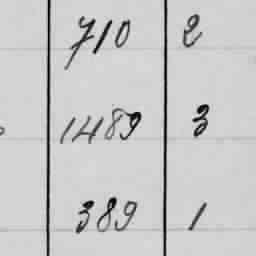 710 2
1489 3
389 1